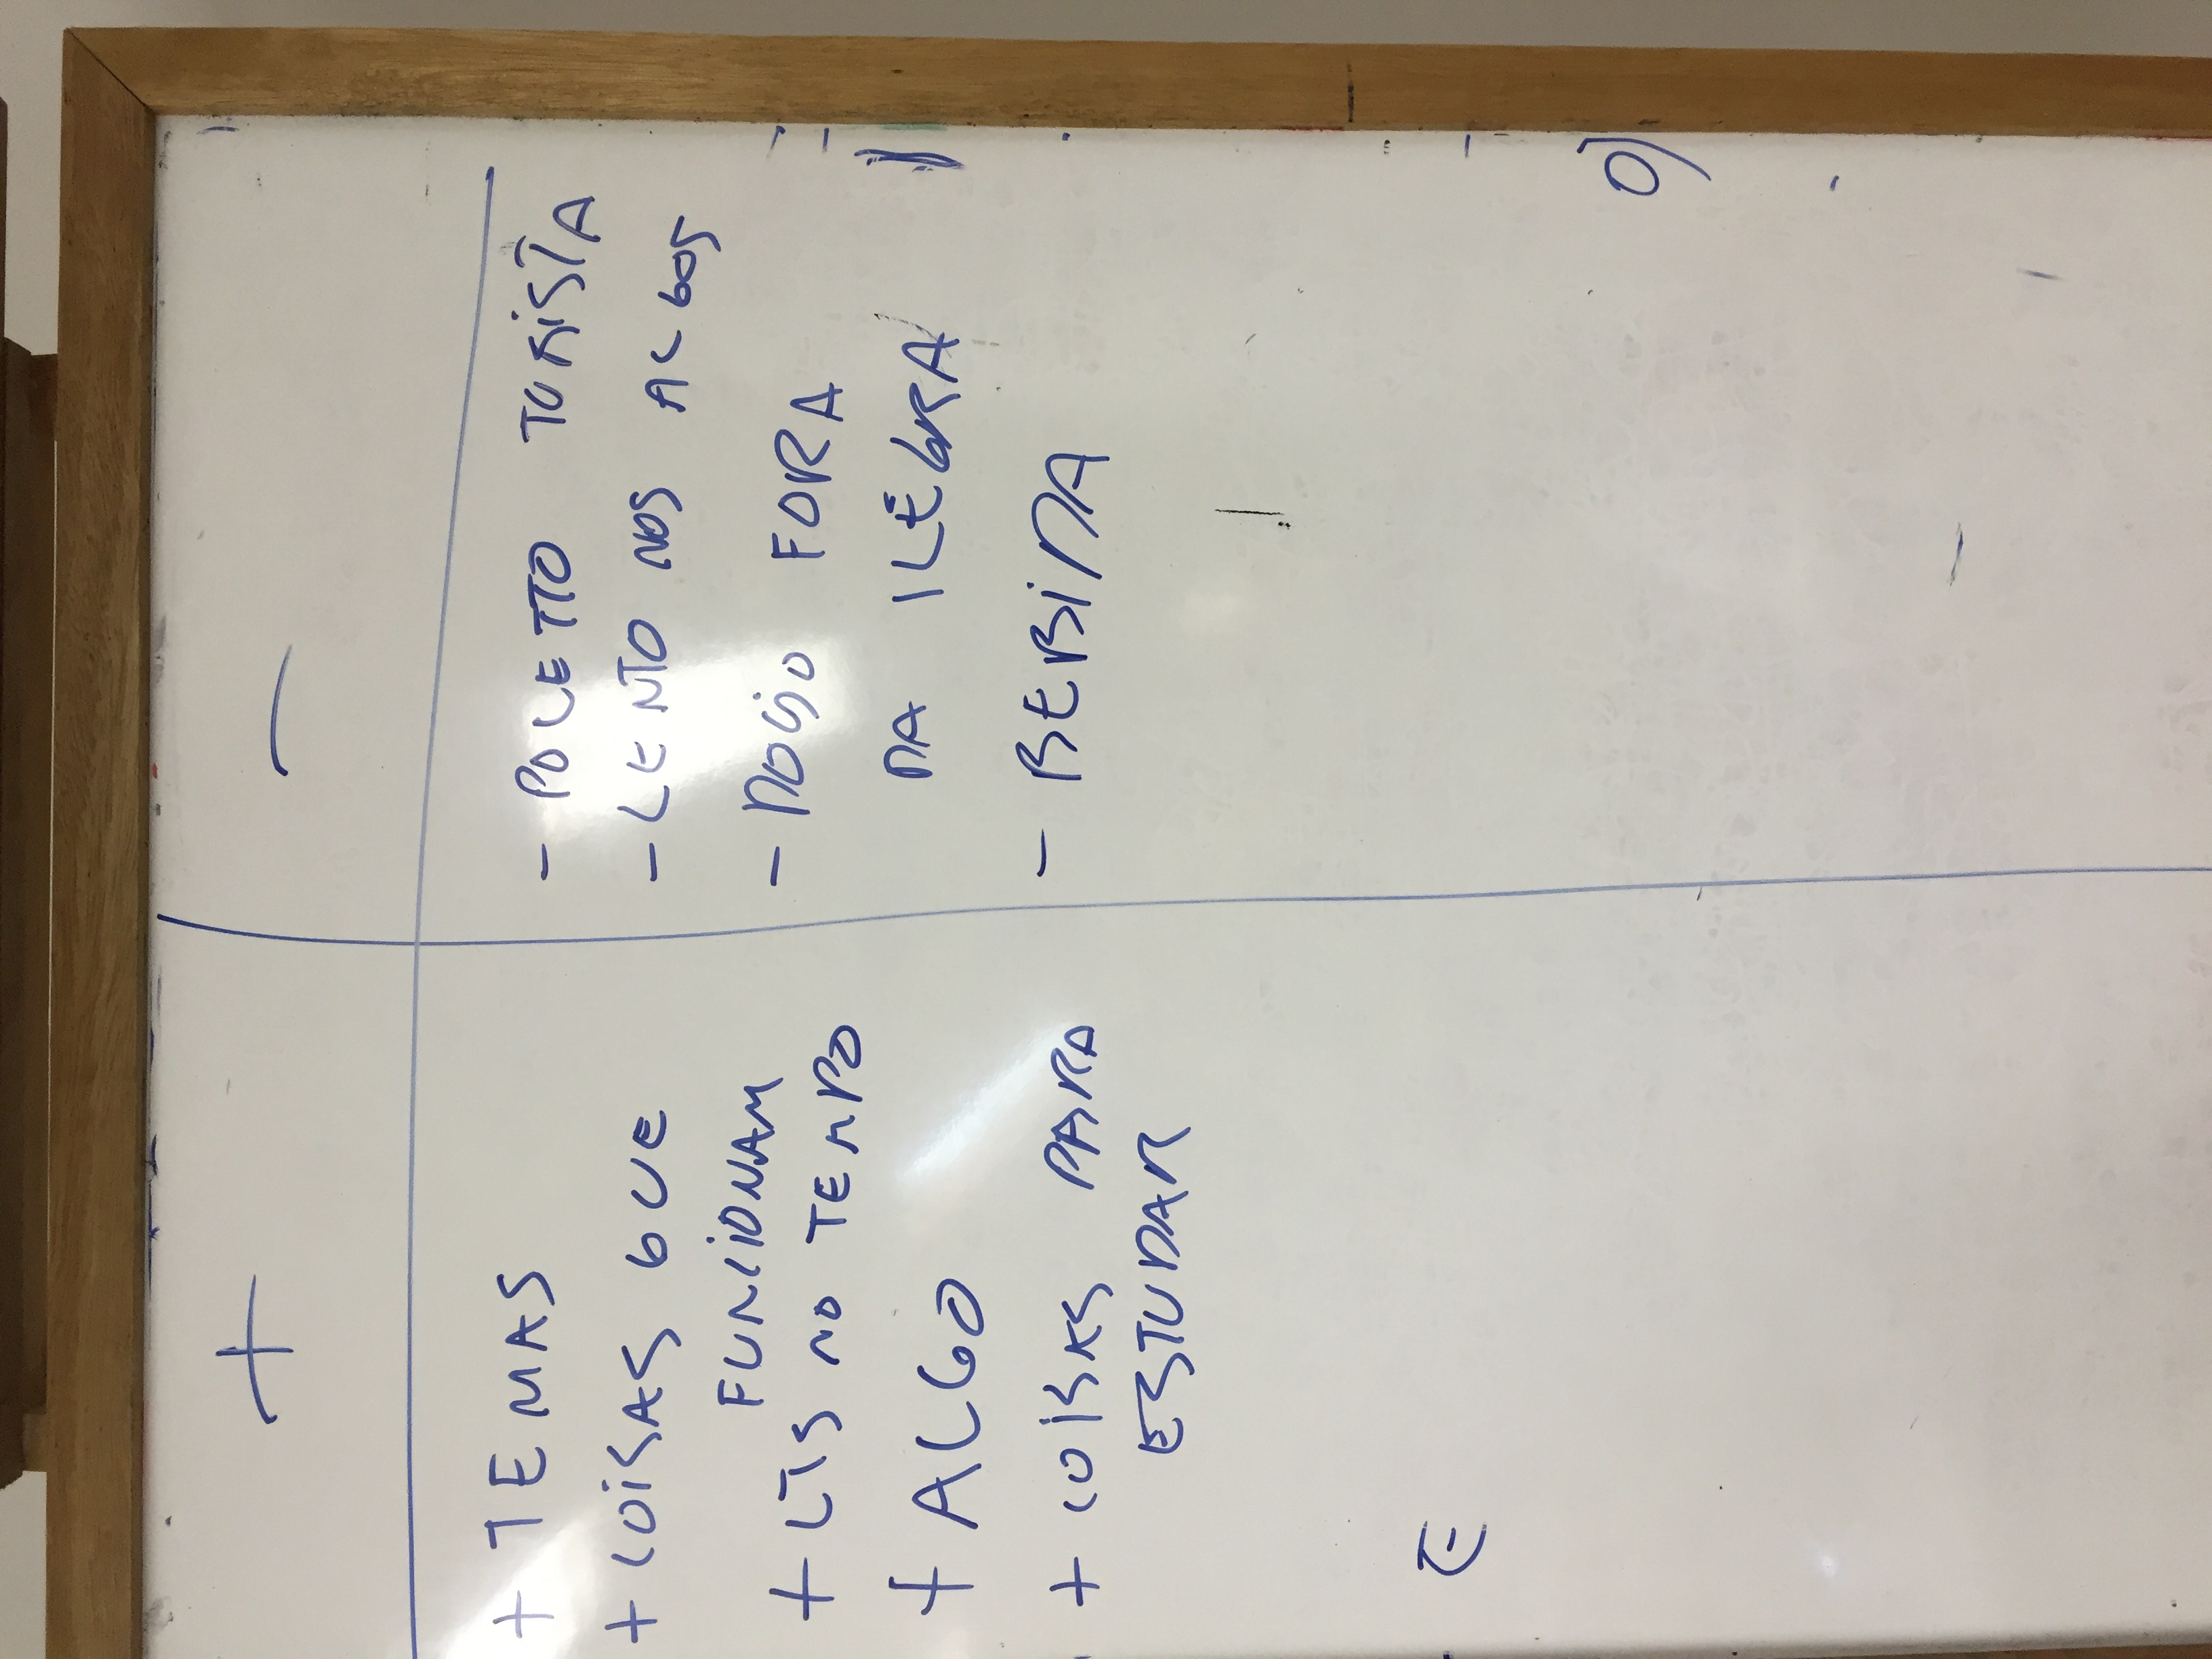 +
+ TEMAS
+ COISAS QUE
FUNCIONAM
+ LTS NO TEMPO
+ ALGO
+ COISAS PARA
ESTUDAR
E
—
- POLETTO TURISTA
- LENTO NOS ALGOS
- DOJO FORA
DA ILEGRA
- BEBIDA